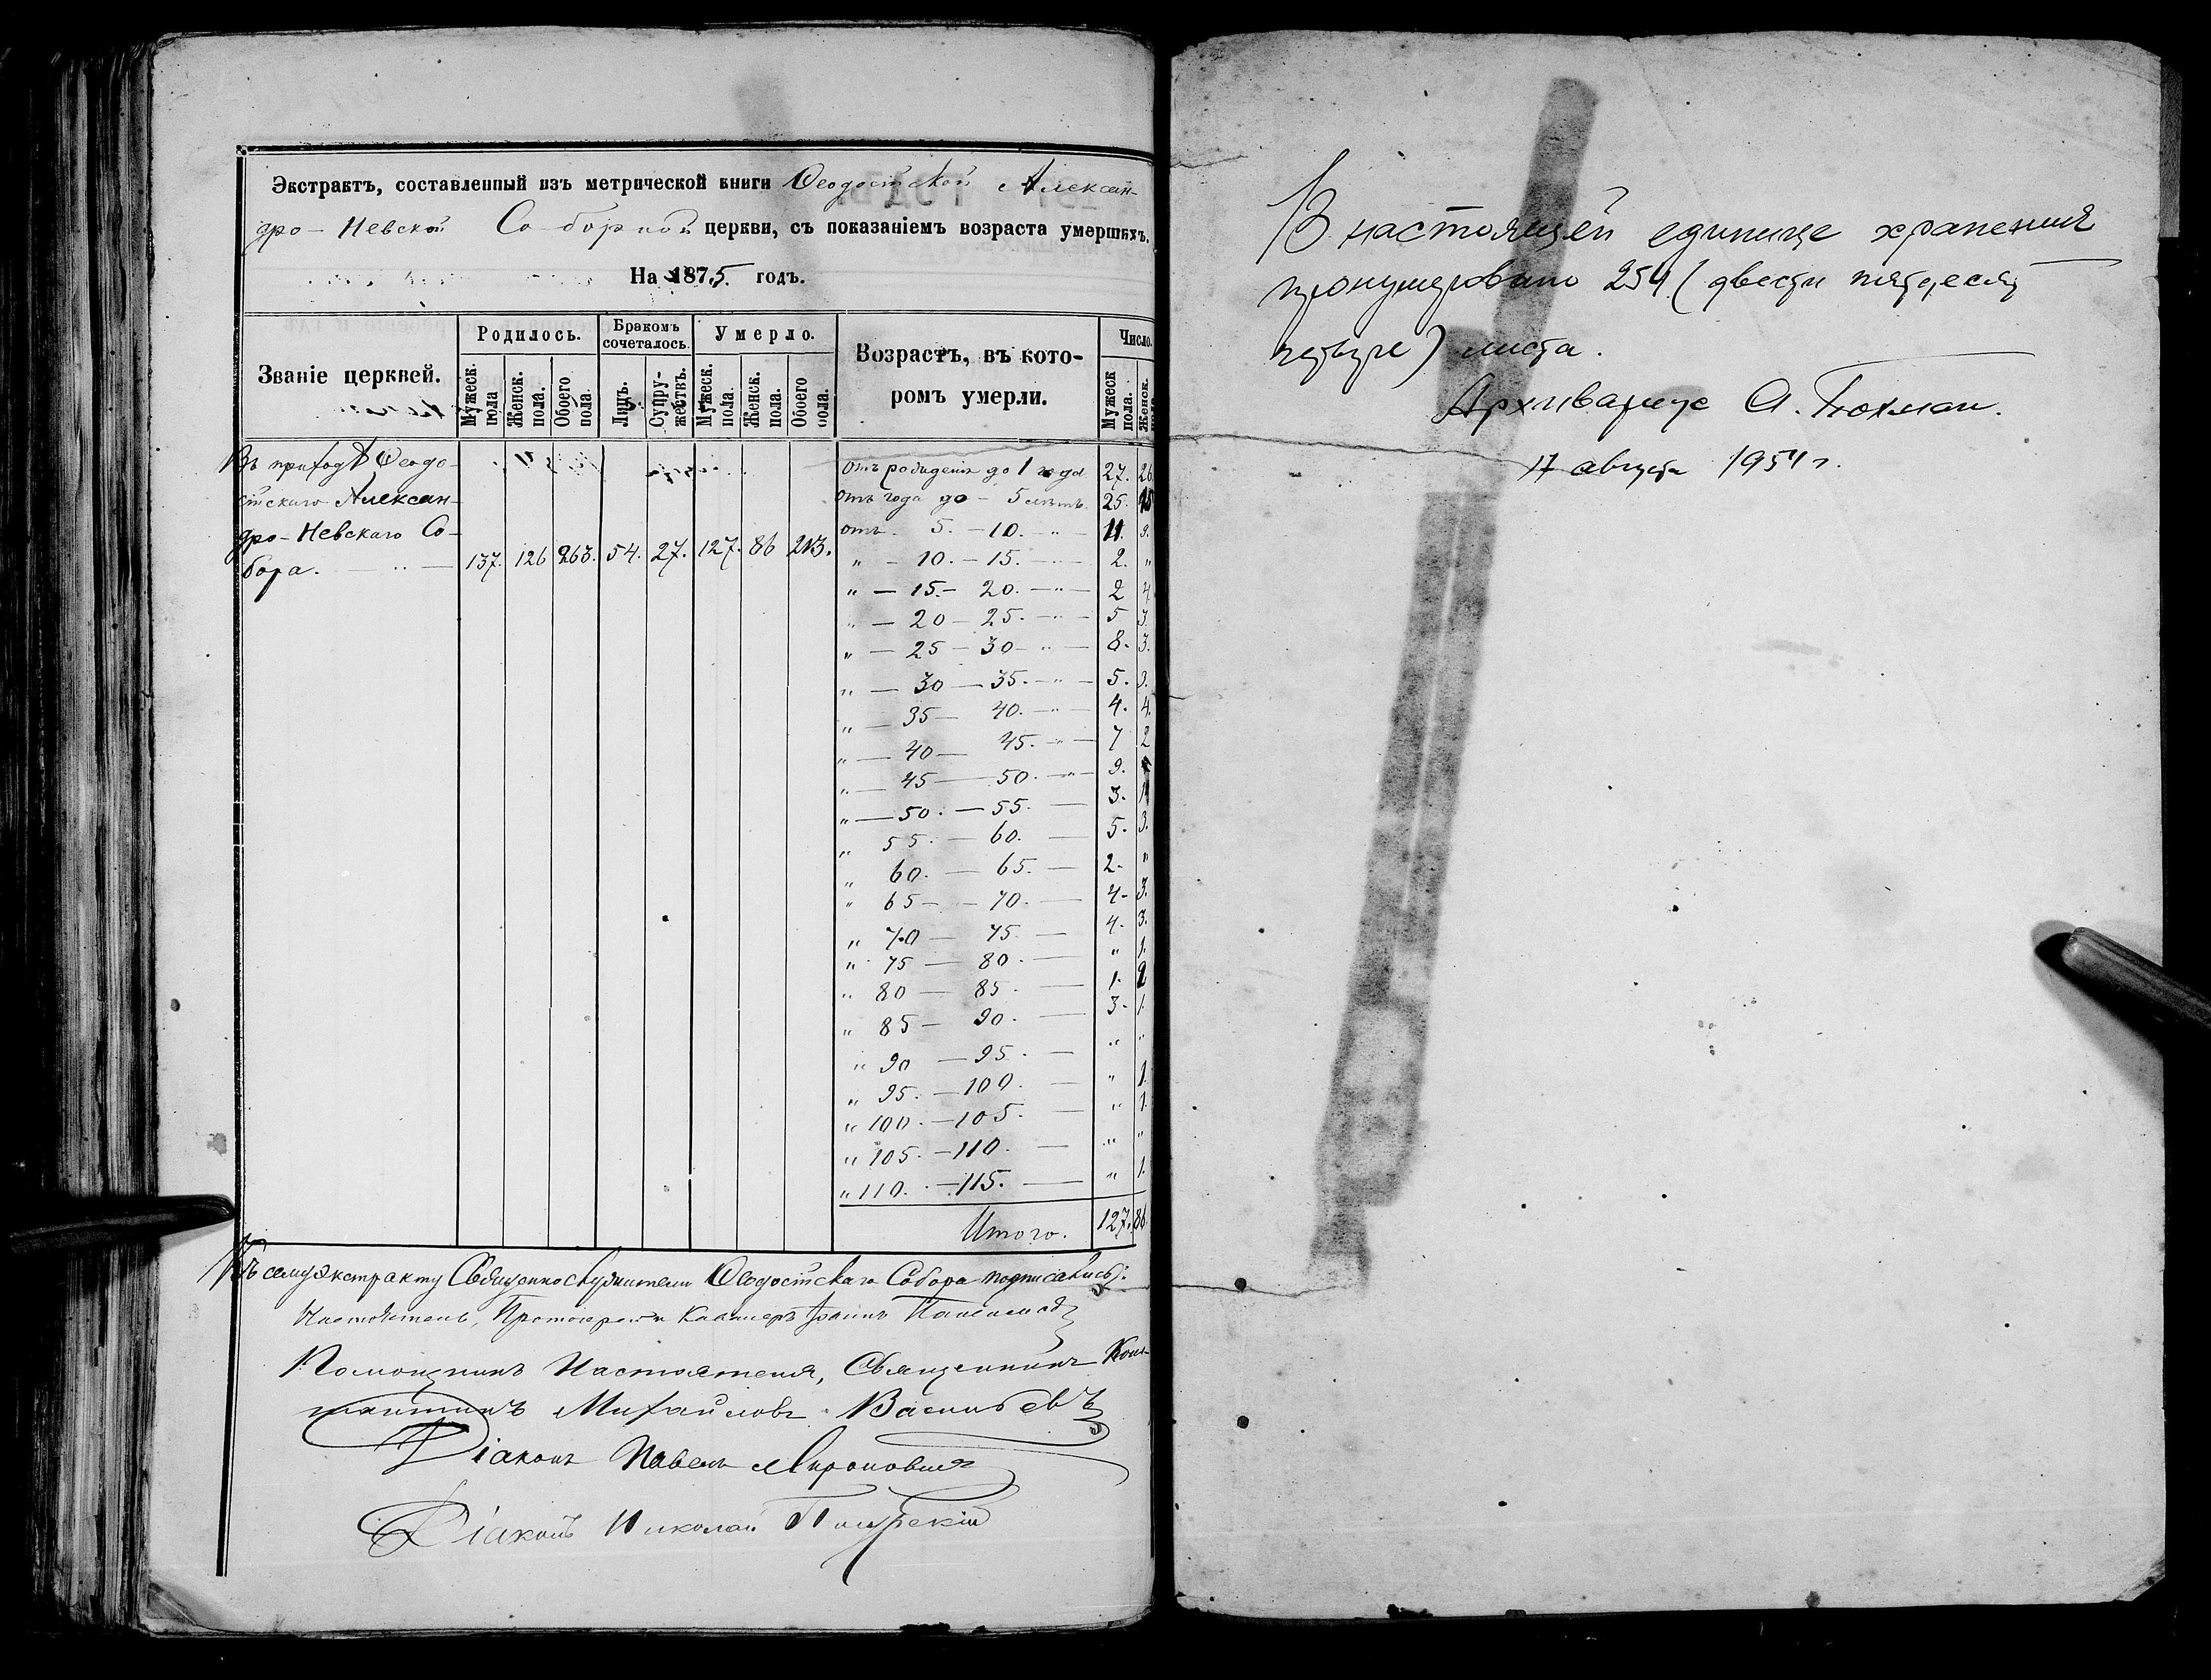 Экстрактъ, составленный изъ метрической книги Ѳеодосійской Алексан-
дро-Невской Соборной церкви, съ показаніемъ возраста умершихъ.
На 1875 годъ.
Званіе церквей.
Родилось.
Бракомъ сочеталось.
Умерло.
Возрастъ, въ кото-
ромъ умерли.
Число.
Мужеск. пола
Женск. пола.
Обоего пола.
Лицъ.
Супру-жествъ.
Мужеск. пола.
Женск. пола.
Обоего пола.
Мужеск пола.
Женск.
Въ приходѣ Ѳеодо-
сійскаго Алексан-
дро-Невскаго Со-
бора. 137. 126 263. 54. 27. 127. 86 213.
отъ рожденія до 1 года 27. 26
отъ года до - 5 лѣтъ 25. 15
отъ 5. - 10. - " - 11. 9.
" - 10. - 15. - 2. "
" - 15. - 20. - " - 2 4
" - 20 - 25. - " - 5 3.
" - 25 - 30 - " - 8. 3.
" - 30 - 35. - " - 5. 3.
" - 35 - 40. - " - 4. 4.
" - 40 - 45. - " - 7 2
" - 45 - 50. - " - 9.
" - 50. - 55. - 3. 1
" 55. - 60. - 5. 3.
" 60. - 65. - 2. "
" 65 - 70. - 4. 3.
" 70 - 75 - 4. 3.
" 75 - 80. - " 1.
" 80 - 85. - 1. 2
" 85 - 90. - 3. 1.
" 90 - 95. - " "
" 95. - 100. - " 1.
" 100. - 105. - " 1.
" 105. - 110. - " "
" 110. - 115. - " 1.
Итого. 127. 86
Къ сему экстракту Священнослужители Ѳеодосійскаго Собора подписались:
Настоятель, Протоіерей и Кавалеръ Іоаннъ
Помощникъ Настоятеля, Священникъ Конс-
тантинъ Михайловъ Васильевъ
Діаконъ Павелъ
Діаконъ Николай
В настоящей единице хранения
пронумеровано 254 (двести пятьдесят
четыре) листа.
Архивариус
17 августа 1954 г.